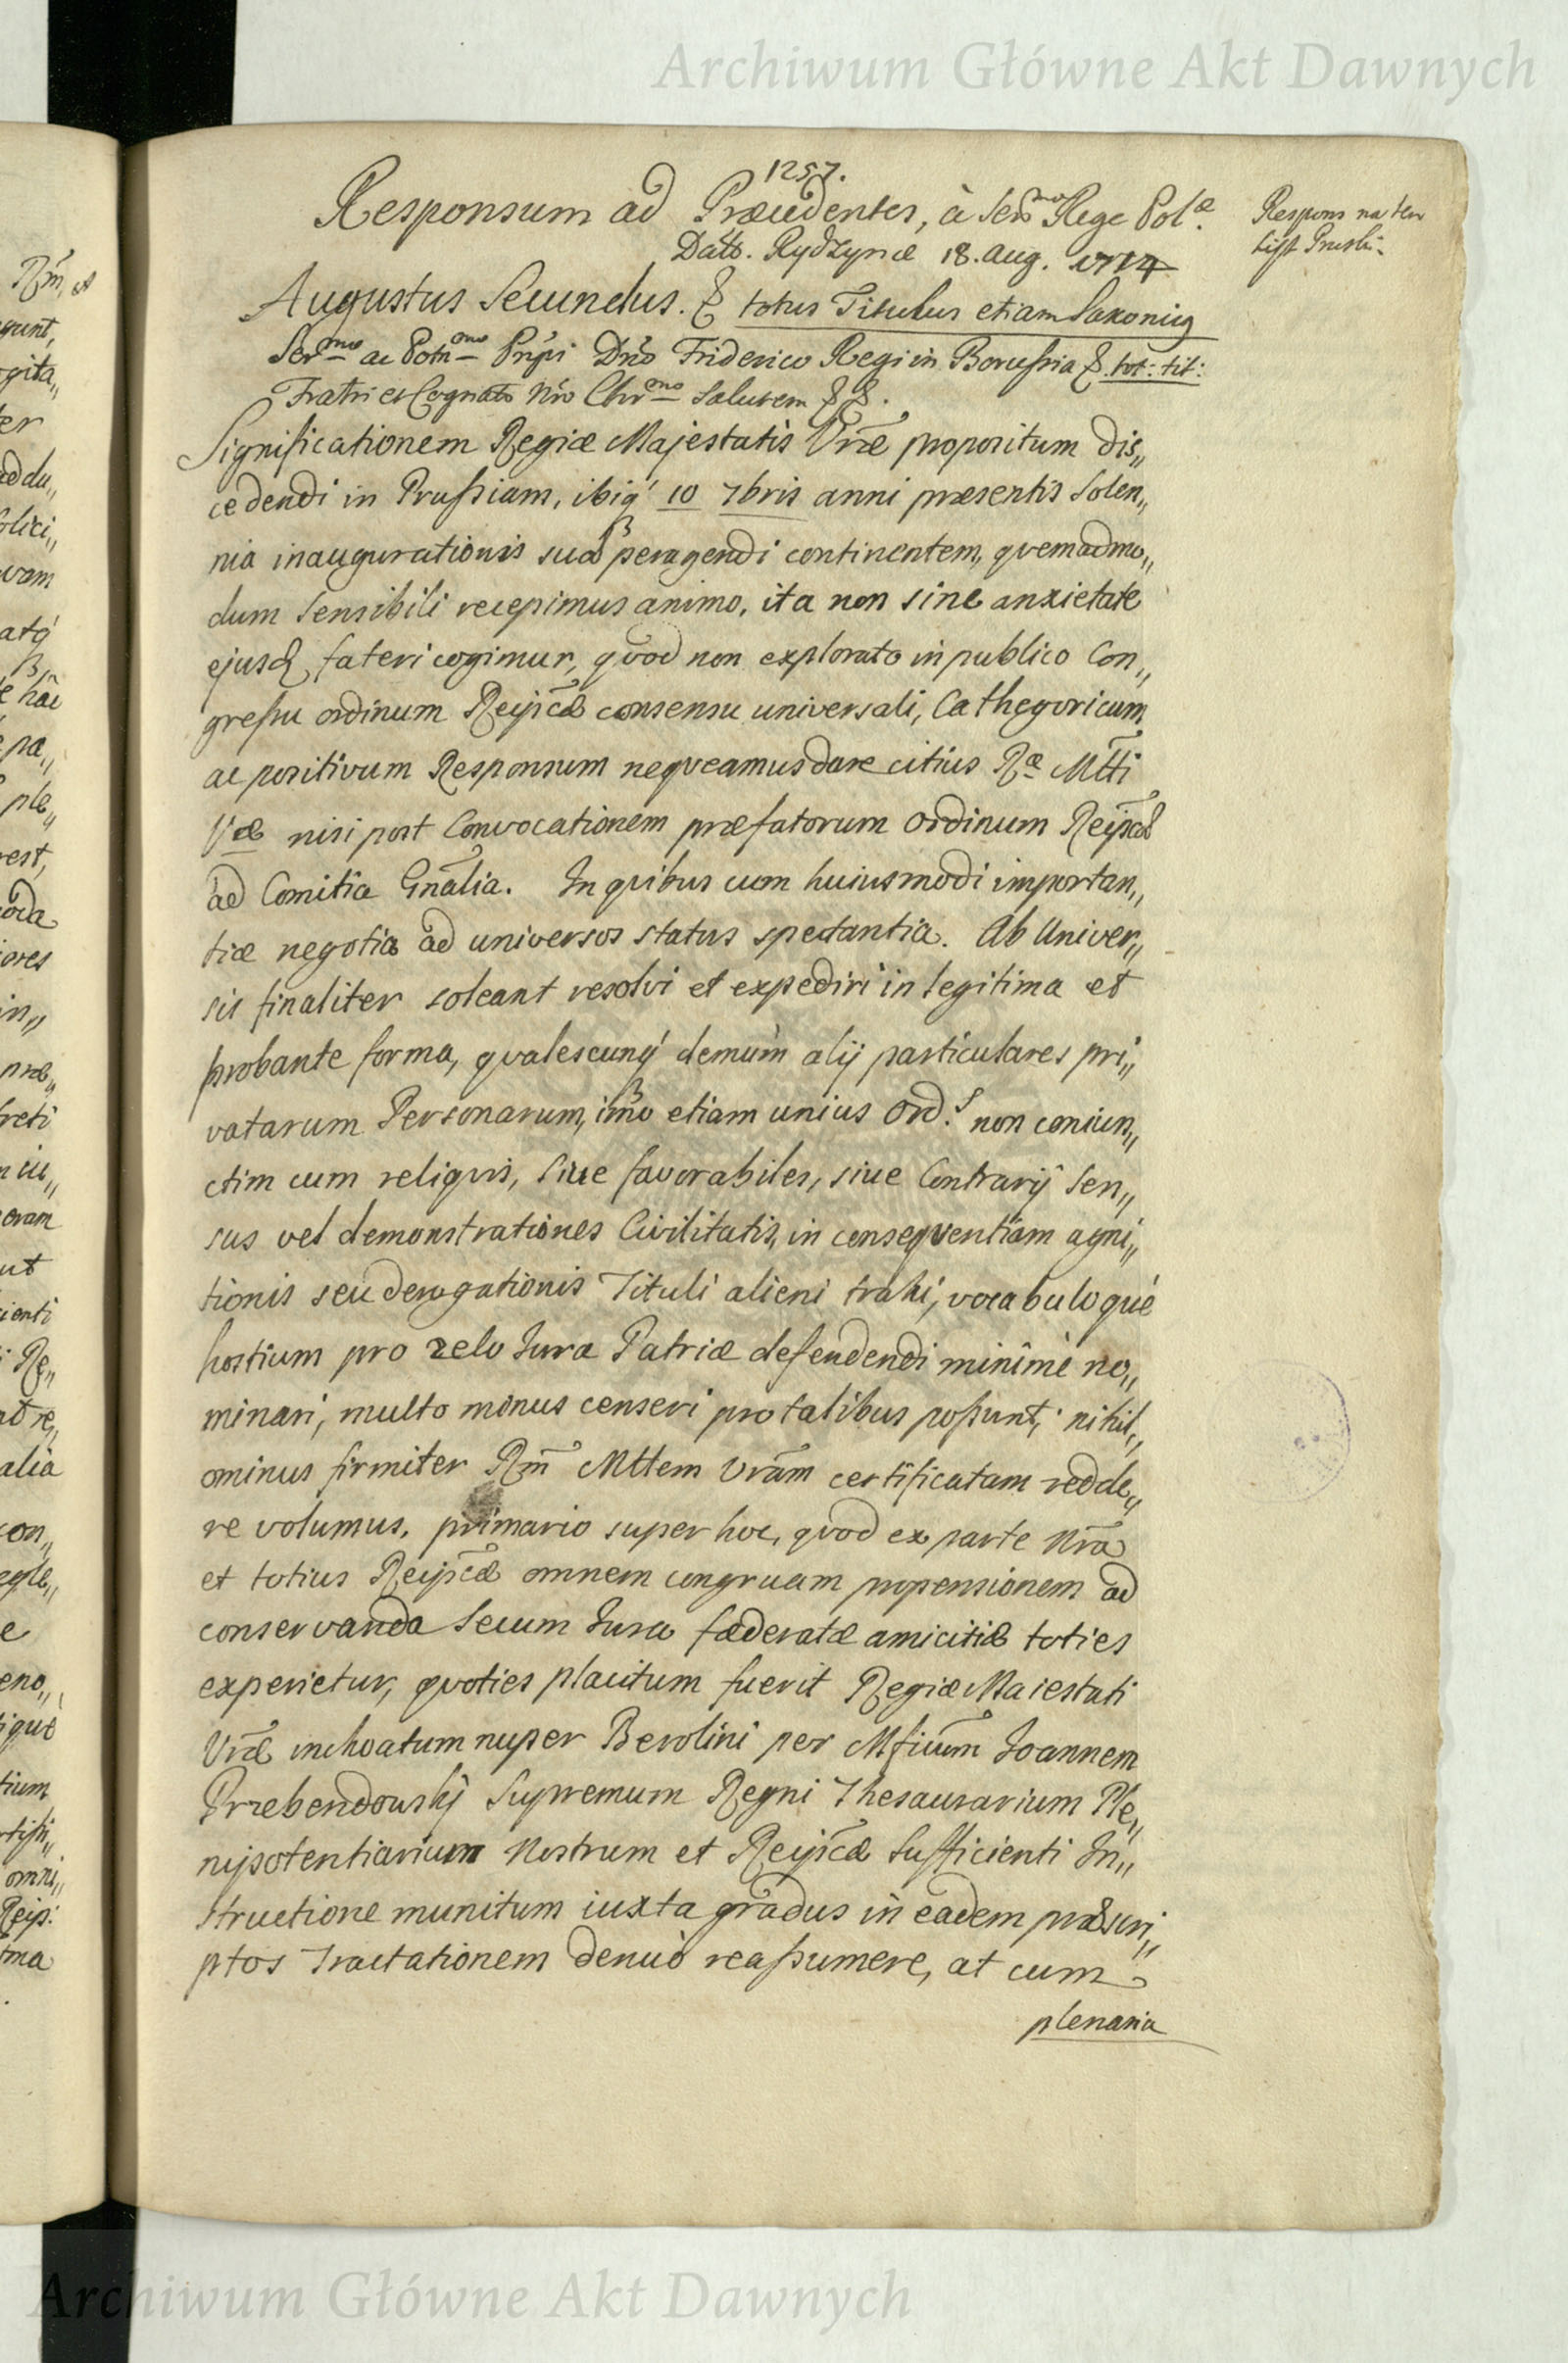 Archiwum Główne Akt Dawnych
1257.
Responsum ad Præcedentes, à Serēmo Rege Polæ.
Datt. Rydzynæ 18. Aug. 1714
Respons na ten
list Pruski.
Augustus Secundus. & totus Titulus etiam Saxoniæ
Sermo ac Potnmo Prĩpi Dnõ Friderico Regi in Borussia &. tot: tit:
Fratri et Cognato Nrõ Chrmo Salutem &&.
Significationem Regiæ Majestatis Vræ propositum dis„
cedendi in Prussiam, ibiq́ 10 7bris anni præsentis Solen„
nia inaugurationis suæ peragendi continentem, qvemadmo„
dum sensibili recepimus animo, ita non sine anxietate
ejusd. fateri cogimur, qvod non explorato in publico Con„
gressu ordinum Reipcæ consensu universali, Cathegoricum
ac positivum Responsum neqveamus dare citius Ræ Mtti
Væ nisi post Convocationem præfatorum Ordinum Reipcæ
ad Comitia Gnãlia. In qvibus cum huiusmodi importan„
tiæ negotia ad universos status spectantia. Ab Univer„
sis finaliter soleant resolvi et expediri in legitima et
probante forma, qvalescunq́ demùm alij particulares pri„
vatarum Personarum, imò etiam unius Ord.s non coniun„
ctim cum reliqvis, siue favorabiles, siue Contrarij Sen„
sus vel demonstrationes Civilitatis, in conseqventiam agni„
tionis seu derogationis Tituli alieni trahi, vocabuloqué
hostium pro zelo Jura Patriæ defendendi minimè no„
minari, multo minus censeri pro talibus possunt; nihil„
ominus firmiter Rm̃ Mttem Vrãm certificatam redde„
re volumus, primario super hoc, qvod ex parte Nrã
et totius Reipcæ omnem congruam propensionem ad
conservanda Secum Jura fæderatæ amicitiæ toties
experietur, qvoties placitum fuerit Regiæ Maiestati
Vræ inchoatum nuper Berolini per Mficũm Joannem
Przebendowskj Supremum Regni Thesaurarium Ple„
nipotentiarium Nostrum et Reipcæ Sufficienti In„
structione munitum iuxta gradus in eadem præscri„
ptos Tractationem denuò reassumere, at cum
plenaria
Archiwum Główne Akt Dawnych